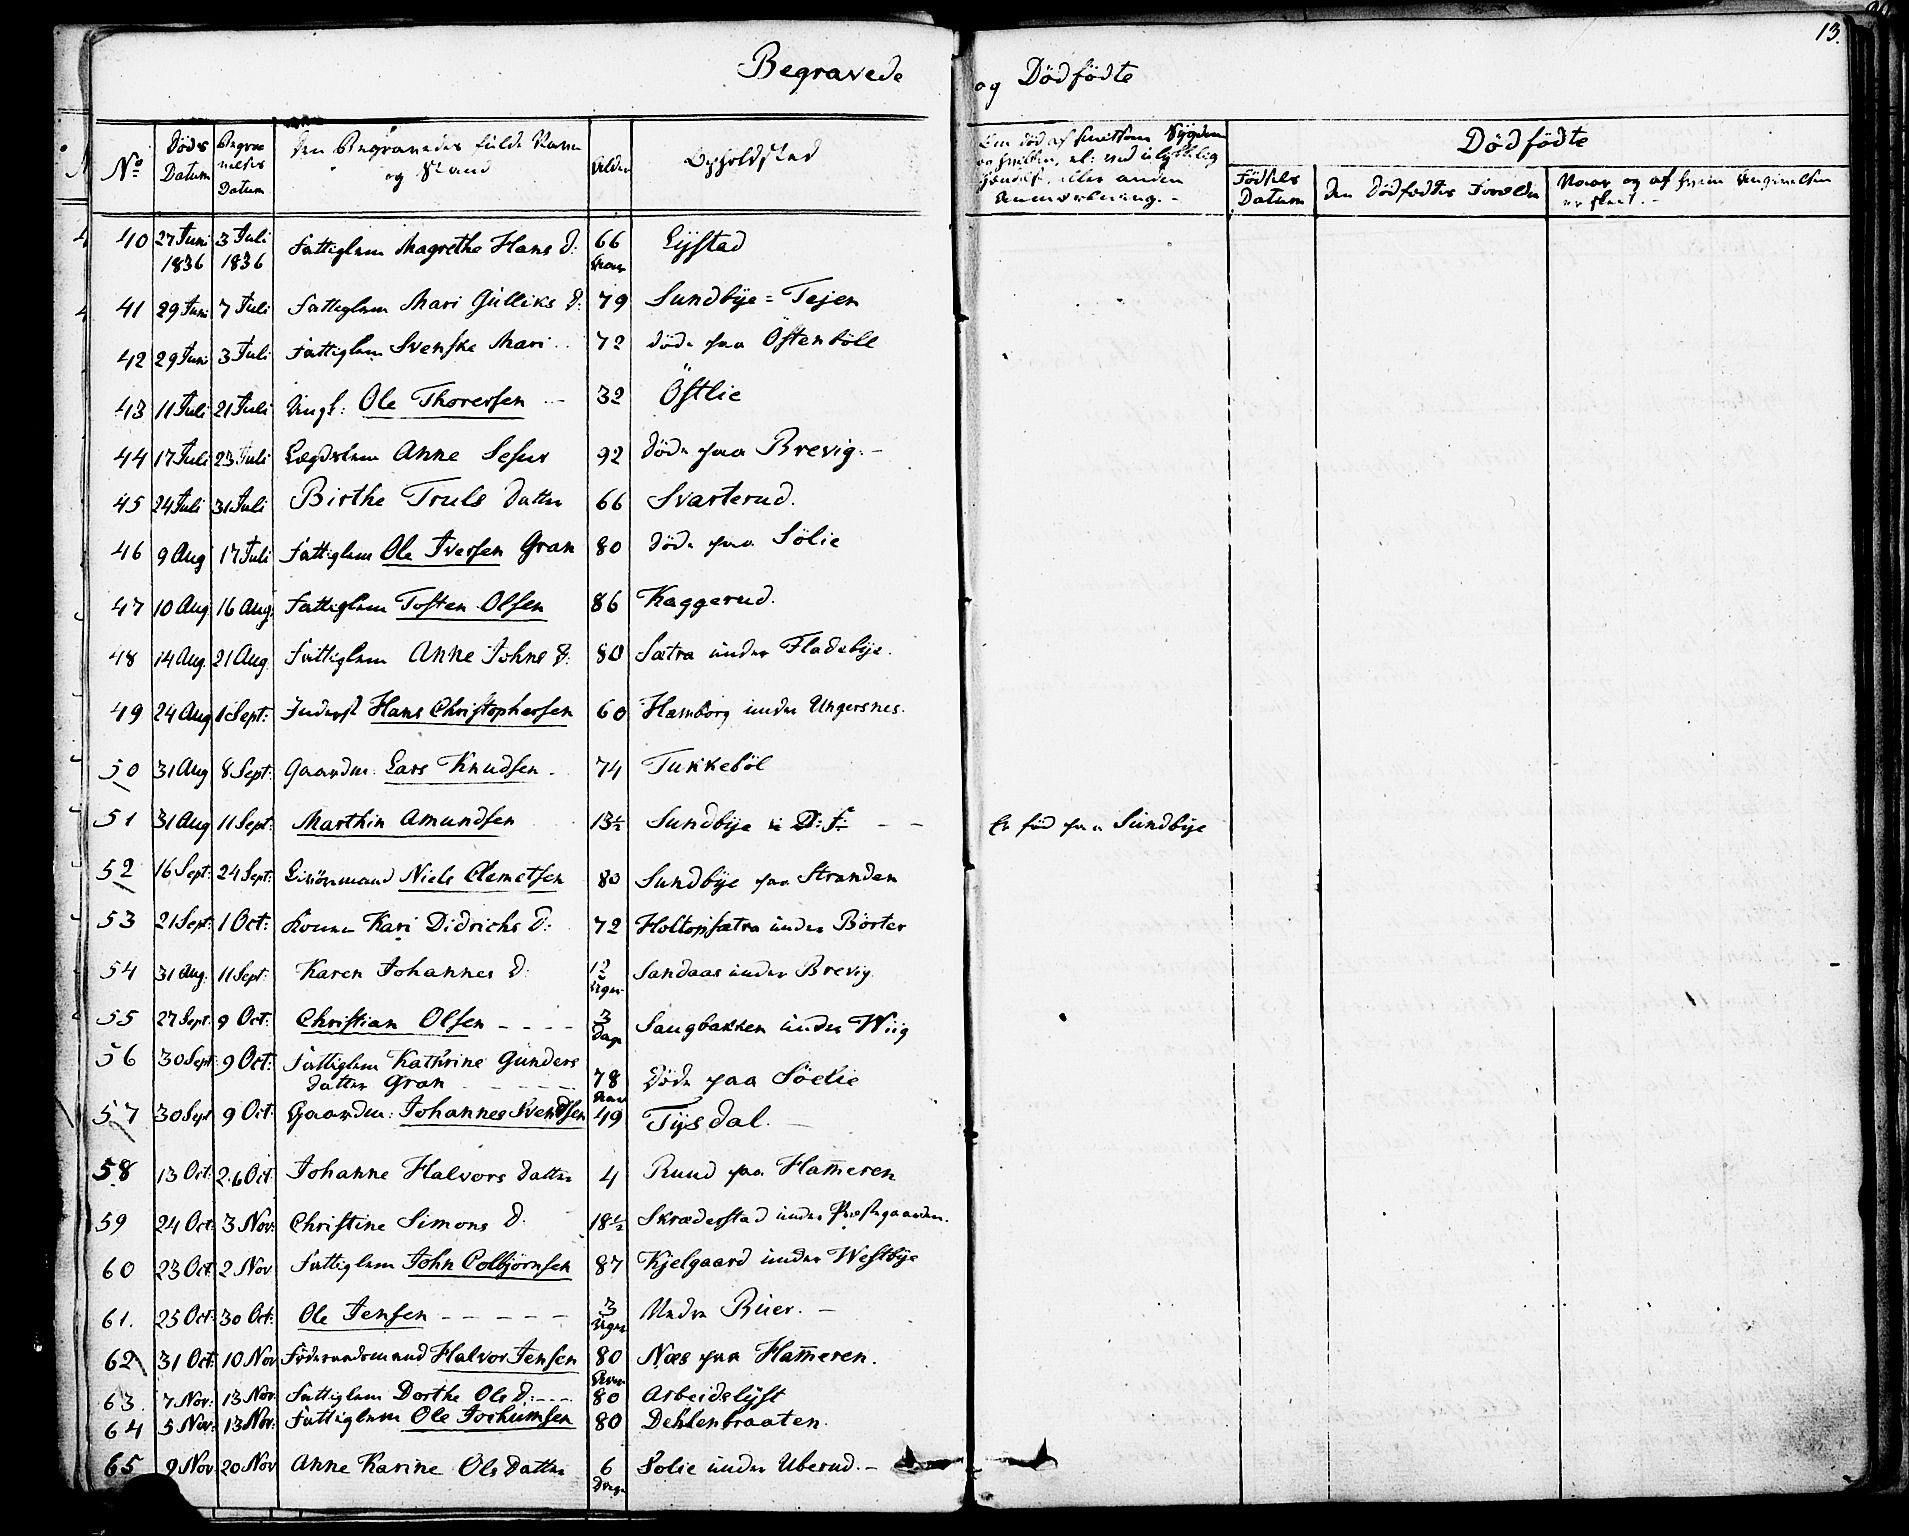 13.
Begravede og Dödfödte
No
Döds Datum
Begravelses Datum
Den Begravedes fulde Navn og Stand
Alder
Opholdsted
Dödfödte
Födsels Datum
Den Dödfödtes Forældre
40 27 Juni 1836 3 Juli 1836 Fattiglem Magrethe Hans D: 66 Lystad
41 29 Juni 7 Juli Fattiglem Mari Gulliks D: 79 Sundbye=Tejen
42 29 Juni 3 Juli Fattiglem Svenske Mari 72 döde paa Östenböll
43 11 Juli 21 Juli Ungk: Ole Thoversen 32 Östlie
44 17 Juli 23 Juli Lægdslem Anne 92 döde paa Brevig.
45 24 Juli 31 Juli Birthe Truls Datter 66 Svarterud.
46 9 Aug 17 Juli Fattiglem Ole Iversen Gran 80 döde paa Sölie
47 10 Aug 16 Aug Fattiglem Tosten Olsen 86 Kaggerud.
48 14 Aug. 21 Aug. Fattiglem Anne Johns D: 80 Sætra under Fladebye.
49 24 Aug 1 Sept: Inderst Hans Christophersen 60 Hamborg under Ungersnes.
50 31 Aug 8 Sept: Gaardm: Lars Knudsen. 74 Tukkeböl
51 31 Aug 11 Sept: Marthin Amundsen 13½ Sundbye i D: F: Er föd paa Sundbye
52 16 Sept: 24 Sept: Niels Clemetsen 80 Sundbye paa Stranden
53 21 Sept: 1 Oct: Kone Kari Didrichs D: 72 Holtopsætra under Börter
54 31 Aug. 11 Sept: Karen Johannes D: 12 Uger Sandaas under Brevig
55 27 Sept. 9 Oct: Christian Olsen 3 Dage Saugbakken under Wiig
56 30 Sept 9 Oct: Fattiglem Kathrine Gunders datter Gran 78 Aar Döde paa Söelie
57 30 Sept 9 Oct: Gaardm: Johannes Svendsen 49 Tysdal.
58 13 Oct: 26 Oct: Johanne Halvors datter 4 Ruud paa Ham̅eren
59 24 Oct: 3 Nov: Christine Simons D: 18½ Skræderstad under Præstegaarden.
60 23 Oct: 2 Nov Fattiglem John Colbjörnsen 87 Kjelgaard under Westbye
61. 25 Oct: 30 Oct: Ole Jensen 3 Uger Nedre Buer.
62 31 Oct: 10 Nov Föderaadsmand Halvor Jensen 80 Aar Næs paa Ham̅eren.
63. 7 Nov: 13 Nov: Fattiglem Dorthe Ols D: 80 Arbeidslyst
64 5 Nov: 13 Nov: Fattiglem Ole Jochumsen 80 Dehlenbraaten.
65 9 Nov 20 Nov Anne Karine Ols Datter 6 Dage Solie under Uberud.